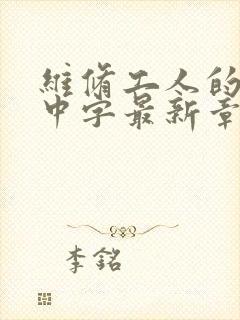 維脩工人的
中字最新章
李銘